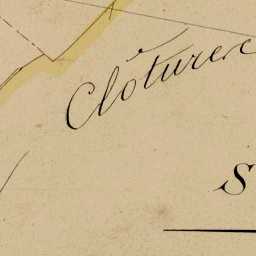 Clôture
S